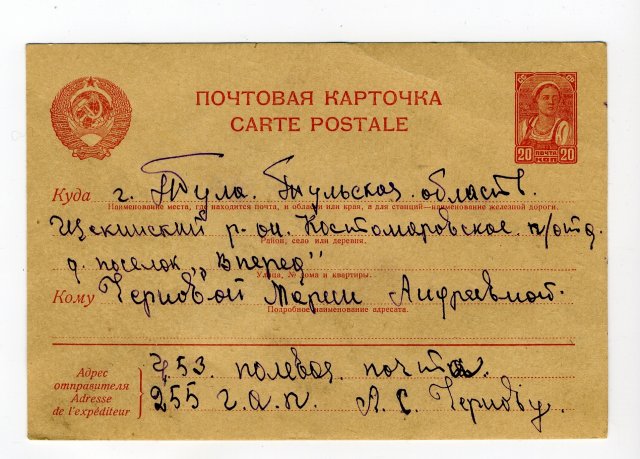 ПОЧТОВАЯ КАРТОЧКА
CARTE POSTALE
20 ПОЧТА КОП 20
Куда г. Тула. Тульская область.
Наименование места, где находится почта, и области или края, а для станций—наименование железной дороги.
Щекинский р-он. Костомаровское п/отд.
Район, село или деревня.
д. поселок „Вперед"
Улица, № дома и квартиры.
Кому Черновой Марии Андреевной.
Подробное наименование адресата.
Адрес отправителя
Adresse de l'expéditeur
453. полевая почта
255 г.а.п. А. С. Чернову.